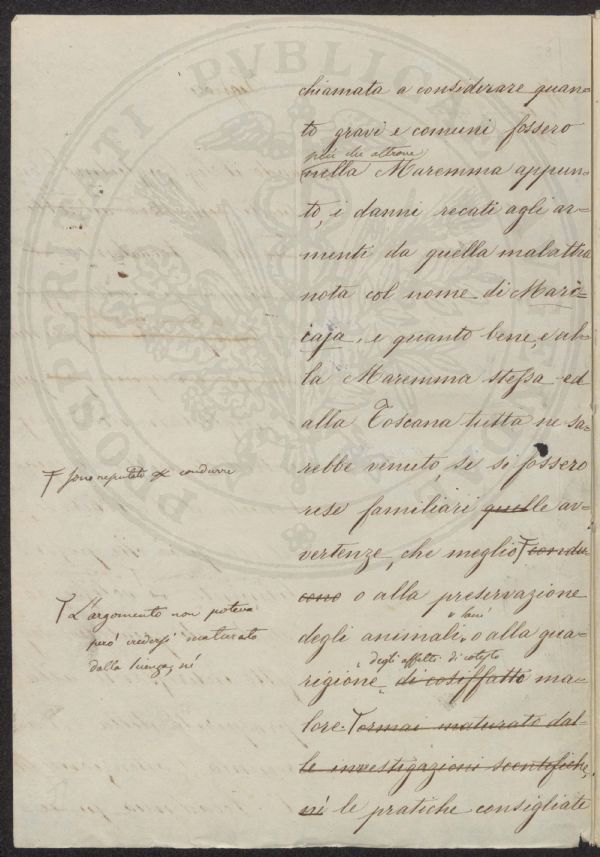 chiamata a considerare quan=
to gravi e comuni fossero
più che altrove
nella Maremma appun=
to, i danni recati agli ar=
menti da quella malattia
nota col nome di Mari=
caja, e quanto bene, e al=
la Maremma stessa ed
alla Toscana tutta ne sa=
rebbe venuto, se si fossero
rese familiari quelle av=
vertenze, che meglio condu=
cono o alla preservazione
degli animali, o alla gua=
degli affetti di cotesto
rigione di cosiffatto ma=
lore. ormai maturato dal=
le investigazioni scentifiche,
né le pratiche consigliate
sono reputate condurre
L'argomento non poteva
però credersi maturato
dalla scienza, né
PROSPERITATI PVBLICAE